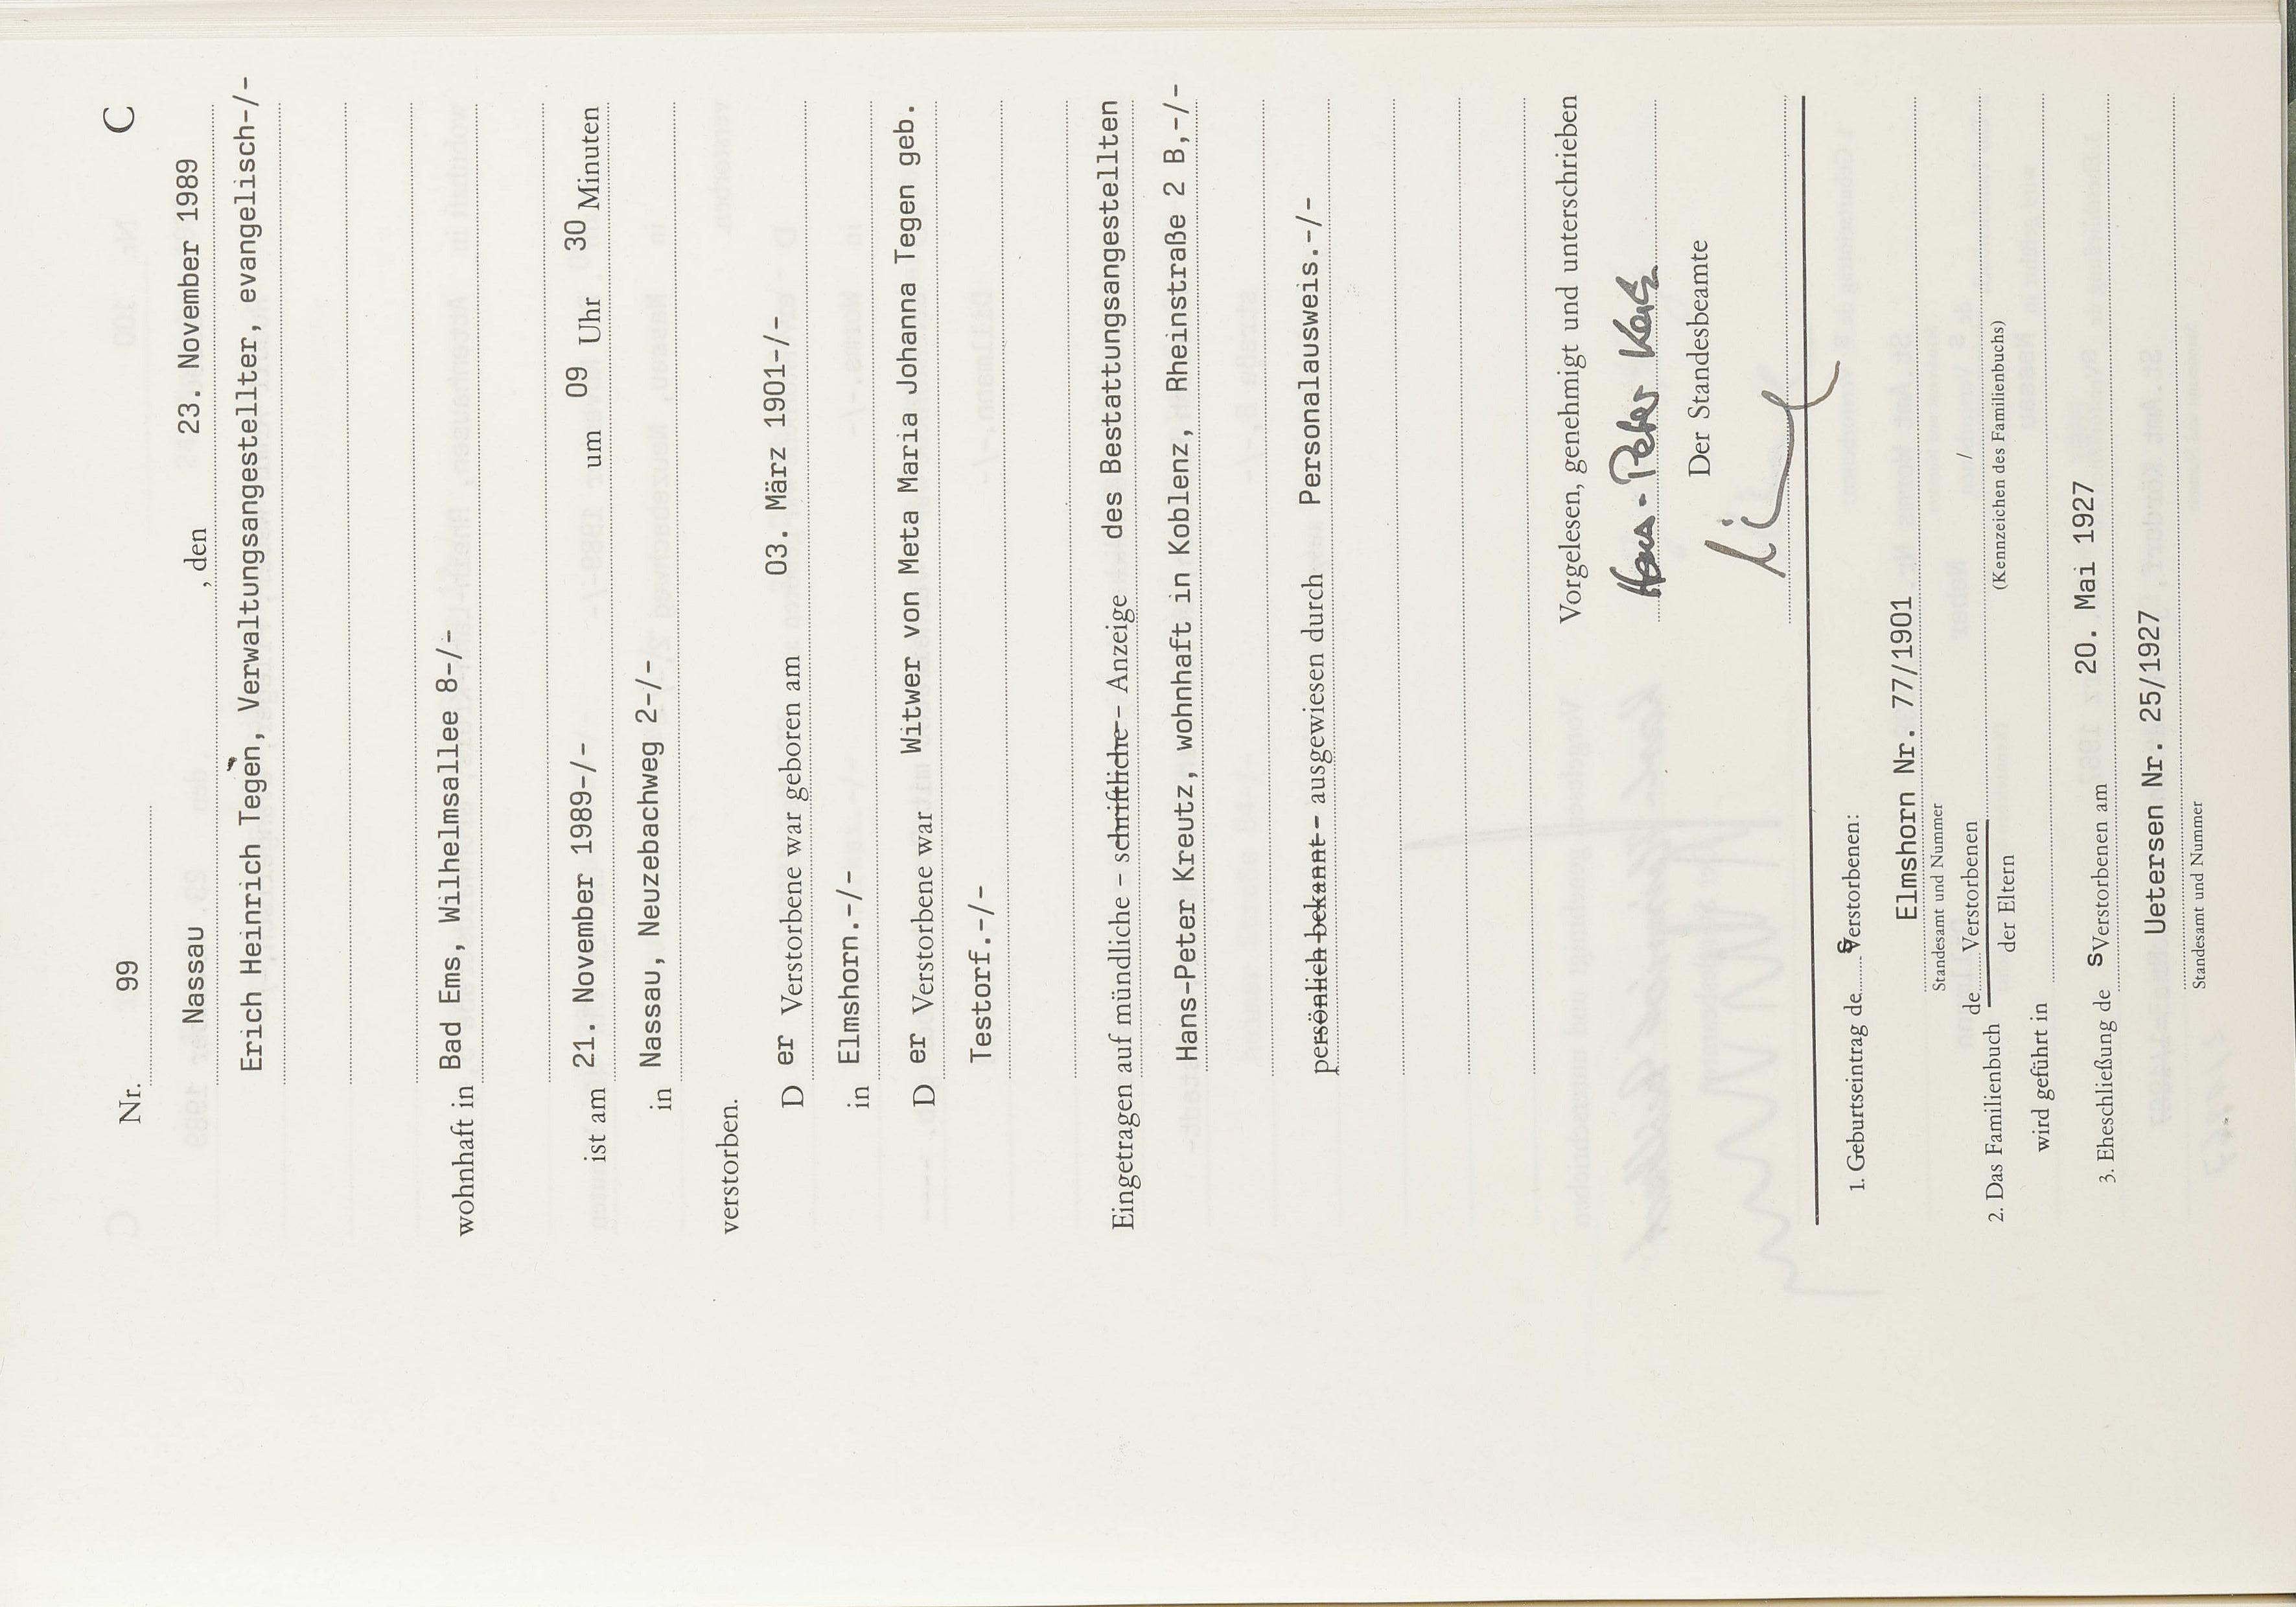 Nr. 99 C
Nassau , den 23. November 1989
Erich Heinrich Tegen, Verwaltungsangestellter, evangelisch-/-
wohnhaft in Bad Ems, Wilhelmsallee 8-/-
ist am 21. November 1989-/- um 09 Uhr 30 Minuten
in Nassau, Neuzebachweg 2-/-
verstorben.
D er Verstorbene war geboren am 03. März 1901-/-
in Elmshorn.-/-
D er Verstorbene war Witwer von Meta Maria Johanna Tegen geb.
Testorf.-/-
Eingetragen auf mündliche – schriftliche – Anzeige des Bestattungsangestellten
Hans-Peter Kreutz, wohnhaft in Koblenz, Rheinstraße 2 B,-/-
persönlich bekannt – ausgewiesen durch Personalausweis.-/-
Vorgelesen, genehmigt und unterschrieben
Hans-Peter
Der Standesbeamte
1. Geburtseintrag des Verstorbenen:
Elmshorn Nr. 77/1901
Standesamt und Nummer
2. Das Familienbuch de Verstorbenen /
der Eltern (Kennzeichen des Familienbuchs)
wird geführt in
3. Eheschließung de s Verstorbenen am 20. Mai 1927
Uetersen Nr. 25/1927
Standesamt und Nummer